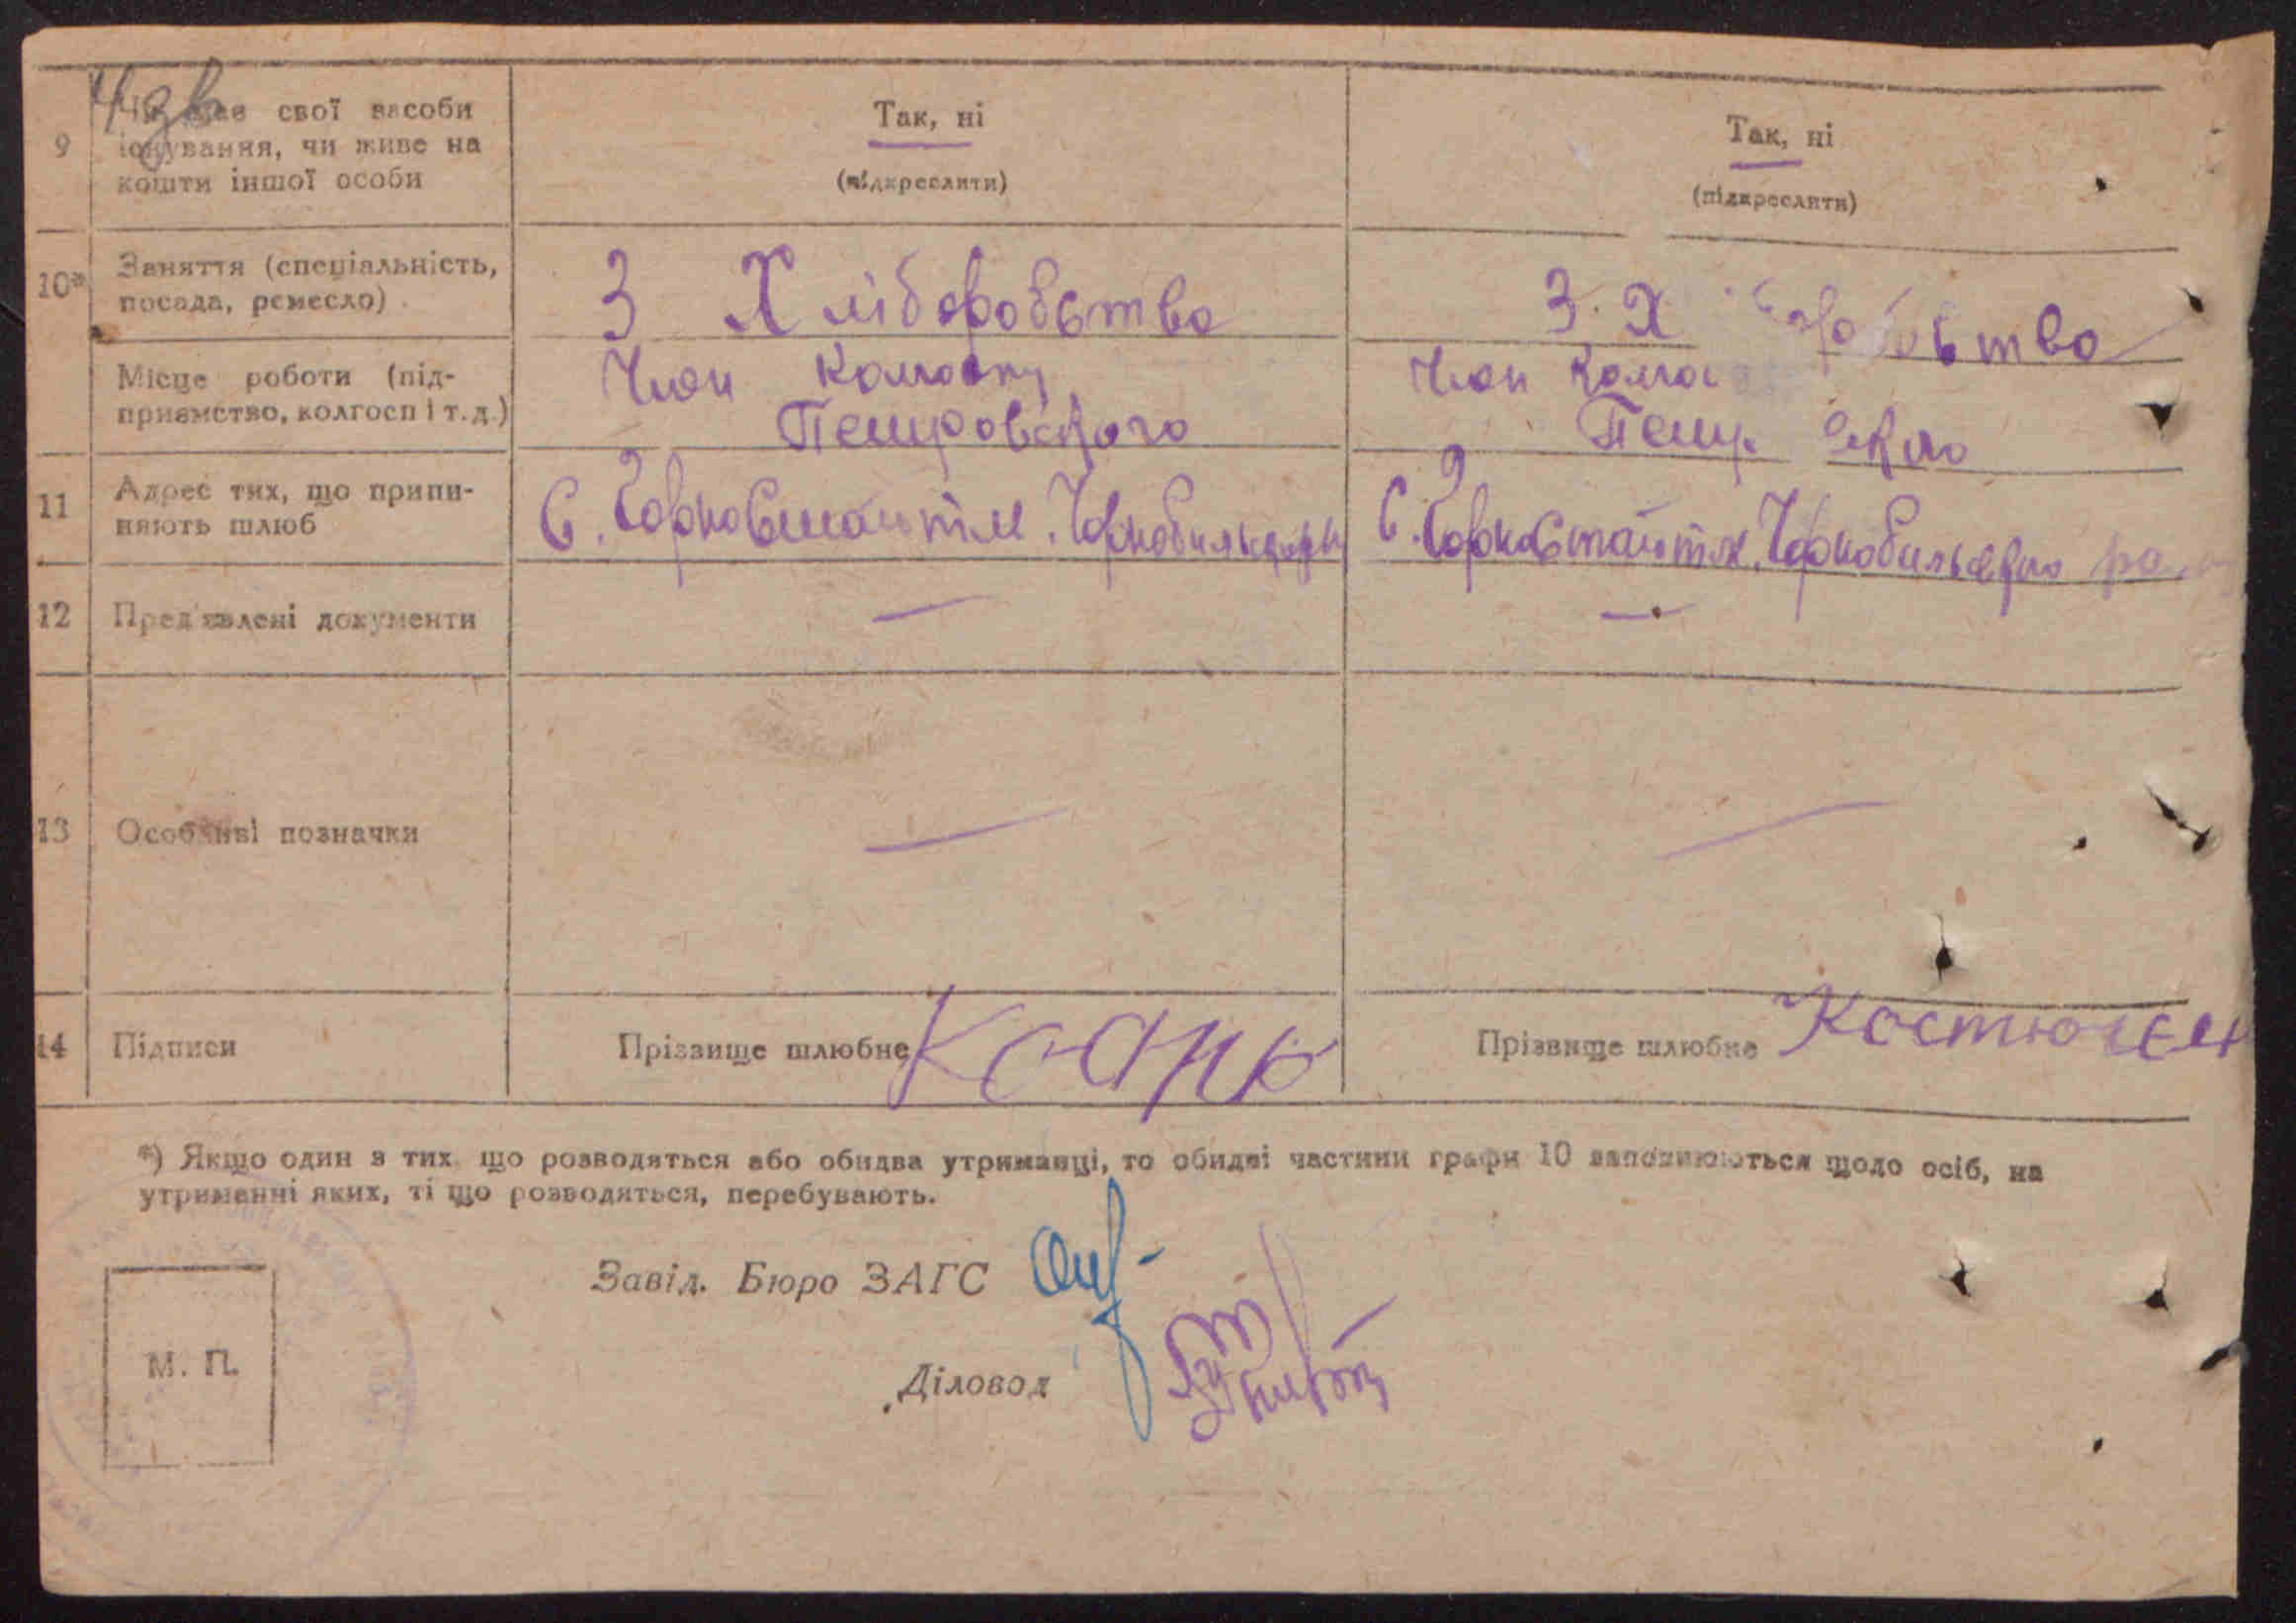 9 Чи має свої засоби
існування, чи живе на
кошти іншої особи
Так, ні
(підкреслити)
Так, ні
(підкреслити)
10* Заняття (спеціальність,
посада, ремесло)
З Хліборобства
З. Х
Місце роботи (під-
приємство, колгосп і т. д.)
Член Колгоспу
Петровського
Член Колгос
Петр ського
11 Адрес тих, що припи-
няють шлюб
С. Горностайпіль. Чорнобильськ
С. Горностайпіль. Чорнобильського
12 Пред'явлені документи
—
—
13 Особливі позначки
—
—
14 Підписи
Прізвище шлюбне
Прізвище шлюбне
*) Якщо один з тих що розводяться або обидва утриманці, то обидві частини графи 10 заповнюються щодо осіб, на
утриманні яких, ті що розводяться, перебувають.
Завід. Бюро ЗАГС
Діловод
М. П.